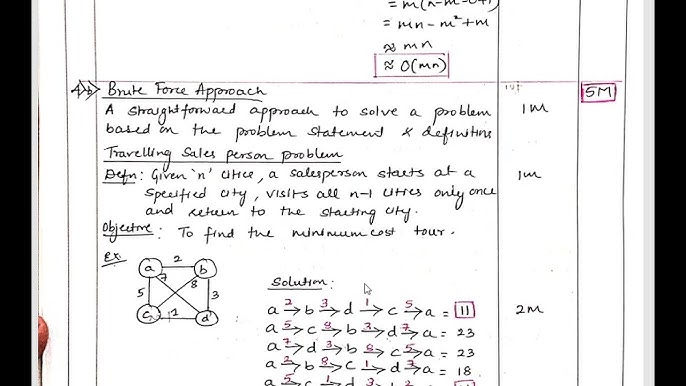 = m(n-m-0+1)
= mn - m² + m
≈ mn
≈ O(mn)
4>b> Brute Force Approach
5M
A straightforward approach to solve a problem
1M
based on the problem statement & definitions
Travelling Sales person problem
Defn: Given 'n' cities, a salesperson starts at a
1m
specified city, visits all n-1 cities only once
and return to the starting city.
Objective: To find the minimum cost tour.
Ex:
a 2 b
7 8
5 3
c 1 d
Solution:
a →2 b →3 d →1 c →5 a = 11
2M
a →5 c →8 b →3 d →7 a = 23
a →7 d →3 b →8 c →5 a = 23
a →2 b →8 c →1 d →7 a = 18